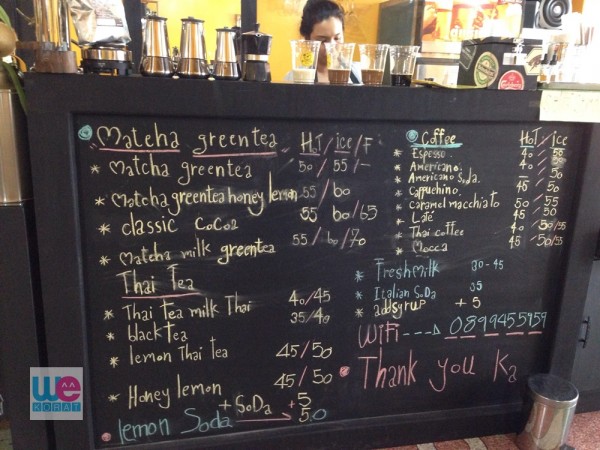 Matcha greentea Hot/ice/F
* Matcha greentea 50/55/-
* Matcha greentea honey lemon 55/60
* classic CoCo2 55/60/65
* Matcha milk greentea 55/60/70
Thai Tea
* Thai Tea milk Thai 40/45
* black tea 35/40
* lemon Thai tea 45/50
* Honey lemon 45/50
+ SoDa +5
lemon Soda 50
Coffee Hot/ice
* Espresso 40/50
* Americano 40/50
* Americano Soda - 50
* Cappuchino 45/50
* caramel macchiato 50/55
* Late 45/50
* Thai coffee 40/50/55
* Mocca 45/50/55
* Fresh milk 30-45
* Italian SoDa 35
* add syrup +5
WiFi ---> 0899455959
Thank you Ka
we
KORAT